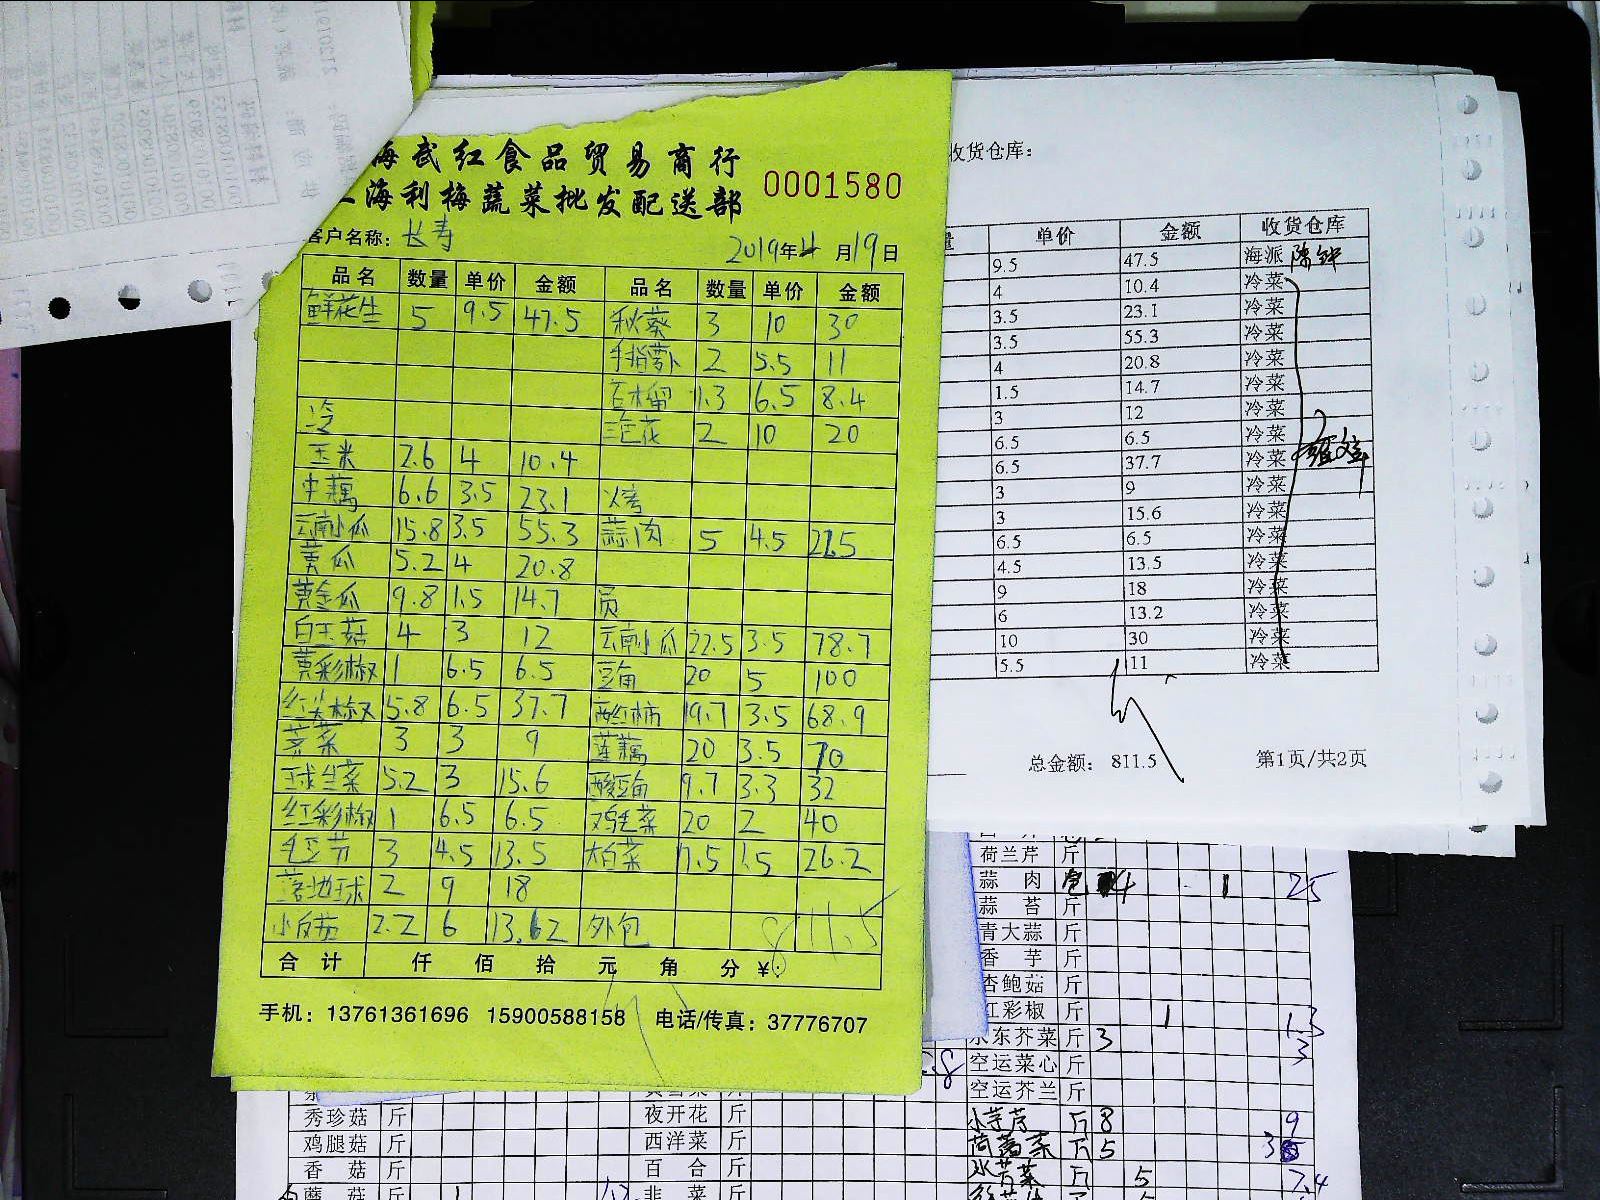 海武红食品贸易商行
海利梅蔬菜批发配送部
0001580
客户名称：长寿
2019年4月19日
品名 数量 单价 金额 品名 数量 单价 金额
鲜花生 5 9.5 47.5 秋葵 3 10 30
手指萝卜 2 5.5 11
石榴 1.3 6.5 8.4
冷 三色花 2 10 20
玉米 2.6 4 10.4
中藕 6.6 3.5 23.1 火考
云南小瓜 15.8 3.5 55.3 蒜肉 5 4.5 22.5
黄瓜 5.2 4 20.8
黄金瓜 9.8 1.5 14.7 员
白玉菇 4 3 12 云南小瓜 22.5 3.5 78.7
黄彩椒 1 6.5 6.5 豆角 20 5 100
红尖椒 5.8 6.5 37.7 西红柿 19.7 3.5 68.9
芥菜 3 3 9 莲藕 20 3.5 70
球生菜 5.2 3 15.6 酸豆角 9.7 3.3 32
红彩椒 1 6.5 6.5 鸡毛菜 20 2 40
毛豆节 3 4.5 13.5 大白菜 17.5 1.5 26.2
落地球 2 9 18
小皮茄 2.2 6 13.2 外包 811.5
合计 仟 佰 拾 元 角 分 ¥:
手机：13761361696 15900588158 电话/传真：37776707
收货仓库：
单价 金额 收货仓库
9.5 47.5 海派
4 10.4 冷菜
3.5 23.1 冷菜
3.5 55.3 冷菜
4 20.8 冷菜
1.5 14.7 冷菜
3 12 冷菜
6.5 6.5 冷菜
6.5 37.7 冷菜
3 9 冷菜
3 15.6 冷菜
6.5 6.5 冷菜
4.5 13.5 冷菜
9 18 冷菜
6 13.2 冷菜
10 30 冷菜
5.5 11 冷菜
总金额： 811.5 第1页/共2页
荷兰芹 斤
蒜肉 包 4 1 25
蒜苔 斤
青大蒜 斤
香芋 斤
杏鲍菇 斤
红彩椒 斤 1 1.3
水东芥菜 斤 3 3
空运菜心 斤
空运芥兰 斤
小芋艿 斤 8 9
斤 5
斤 5 7.4
秀珍菇 斤 夜开花 斤
鸡腿菇 斤 西洋菜 斤
香菇 斤 百合 斤
蘑菇 斤 韭菜 斤